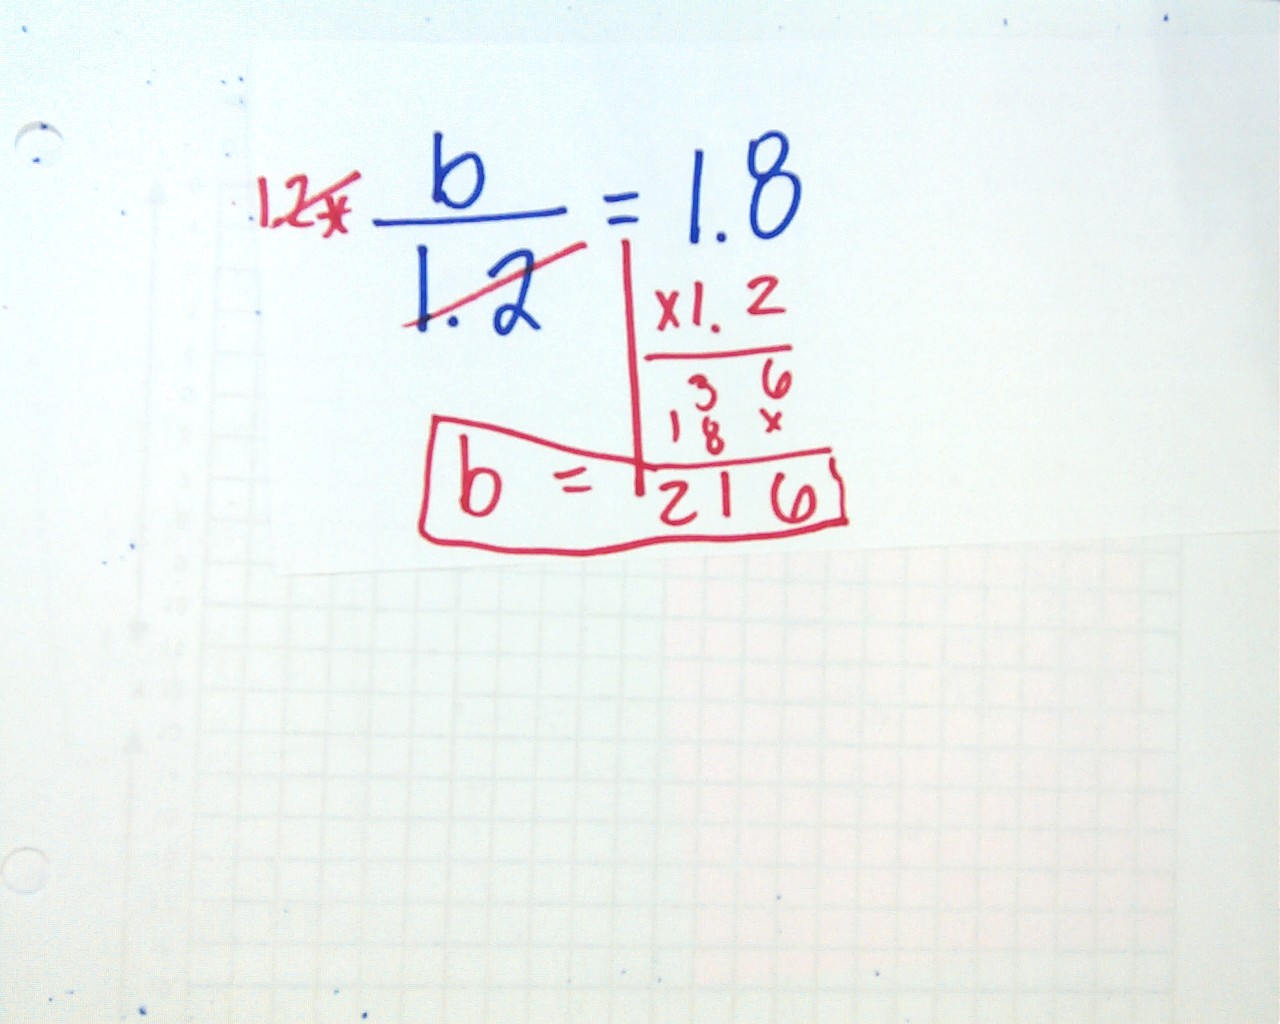 1.2* b/1.2 = 1.8
x1.2
3 6
1 8 x
b = 216